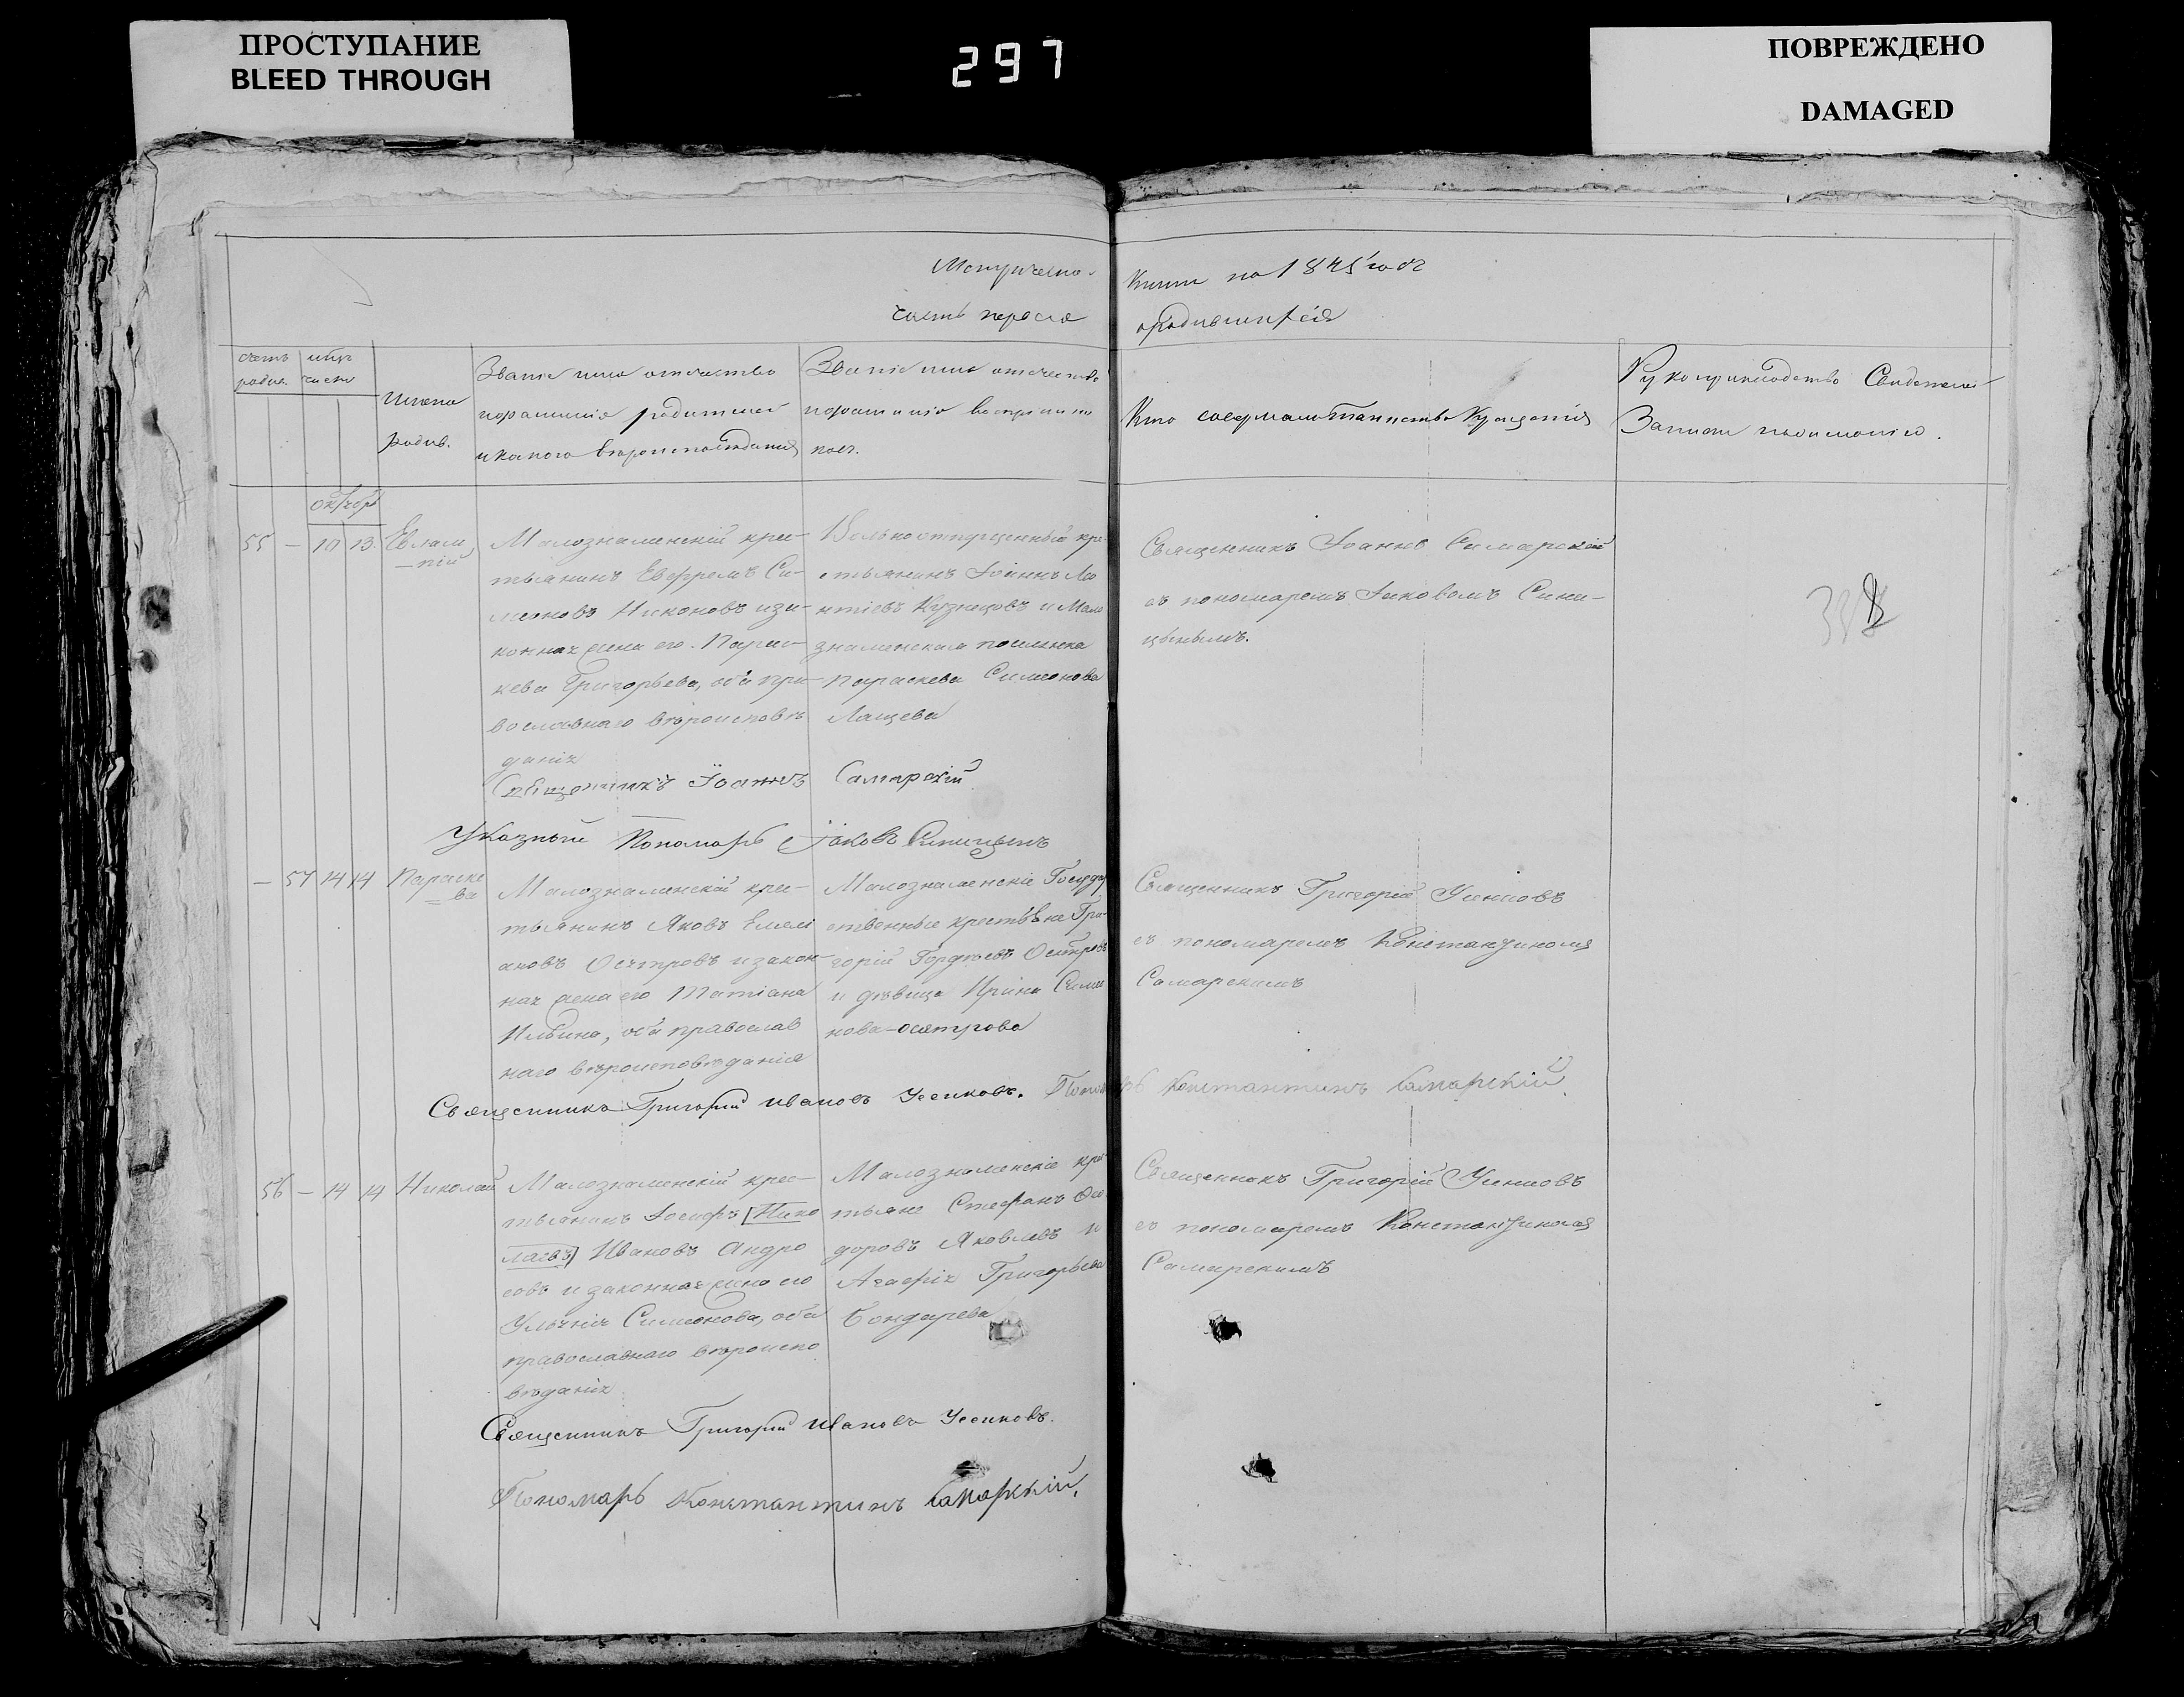 ПРОСТУПАНИЕ
BLEED THROUGH
297
ПОВРЕЖДЕНО
DAMAGED
Метрической Книги на 1845 годъ
часть первая о родившихся
счетъ родив.
мѣсяц число
Имена родив.
Званіе имя отчество
и фамилія родителей
и какого вѣроисповѣданія
Званіе имя отчество
и фамилія воспріимни
ковъ.
Кто совершалъ таинство Крещенія
Рукоприкладство Свидетелей
Записи
октябрь
55 – 10 13 Евлам
пій
Малознаменскій крес-
тьянинъ Евфремъ Си-
меоновъ Никоновъ и за-
конная жена его Парас-
кева Григорьева, оба пра-
вославнаго вѣроисповѣ
данія
Вольноотпущенный кре-
стьянинъ Іоаннъ
Кузнецовъ и Мало
знаменская поселянка
Параскева Симеонова
Лащева
Священникъ Іоаннъ Самарскій
съ пономаремъ Іаковомъ Сини-
цынымъ.
338
Священникъ Іоаннъ Самарскій
Указный Пономарь Іаковъ Синицынъ
– 57 14 14 Параске
ва
Малознаменскій крес-
тьянинъ Яковъ Емели
ановъ Осятровъ и закон-
ная жена его Татіана
Ильина, оба православ
наго вѣроисповѣданія
Малознаменскіе Государ
ственные крестьяне Гри-
горій Гордѣевъ Осятровъ
и дѣвица Ирина Симео
нова Осятрова
Священникъ Григорій Усиковъ
съ пономаремъ Константиномъ
Самарскимъ
Священникъ Григорій Ивановъ Усиковъ. Пономарь Константинъ Самарскій.
56 – 14 14 Николай
Малознаменскій крес-
тьянинъ Іосифъ [Нико
лаевъ] Ивановъ Андро
совъ и законная жена его
Симеонова, оба
православнаго вѣроиспо
вѣданія
Малознаменскіе кре
стьяне Стефанъ Ѳео
доровъ Яковлевъ и
Агафія Григорьева
Бондарева
Священникъ Григорій Усиковъ
съ пономаремъ Константиномъ
Самарскимъ
Священникъ Григорій Ивановъ Усиковъ.
Пономарь Константинъ Самарскій.